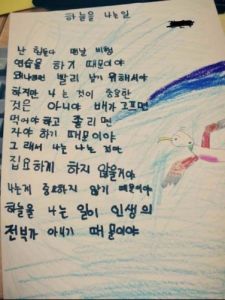 하늘을 나는일
난 힘들다 맨날 비행
연습을 하기 때문이야
왜냐하면 빨리 날기 위해서야
하지만 나는 것이 중요한
것은 아니야 배가 고프면
먹어야 하고 졸리면
자야 하기 때문이야
그래서 나는 나는 것만
집요하게 하지 않을거야
나는게 중요하지 않기 때문이야
하늘을 나는 일이 인생의
전부가 아니기 때문이야